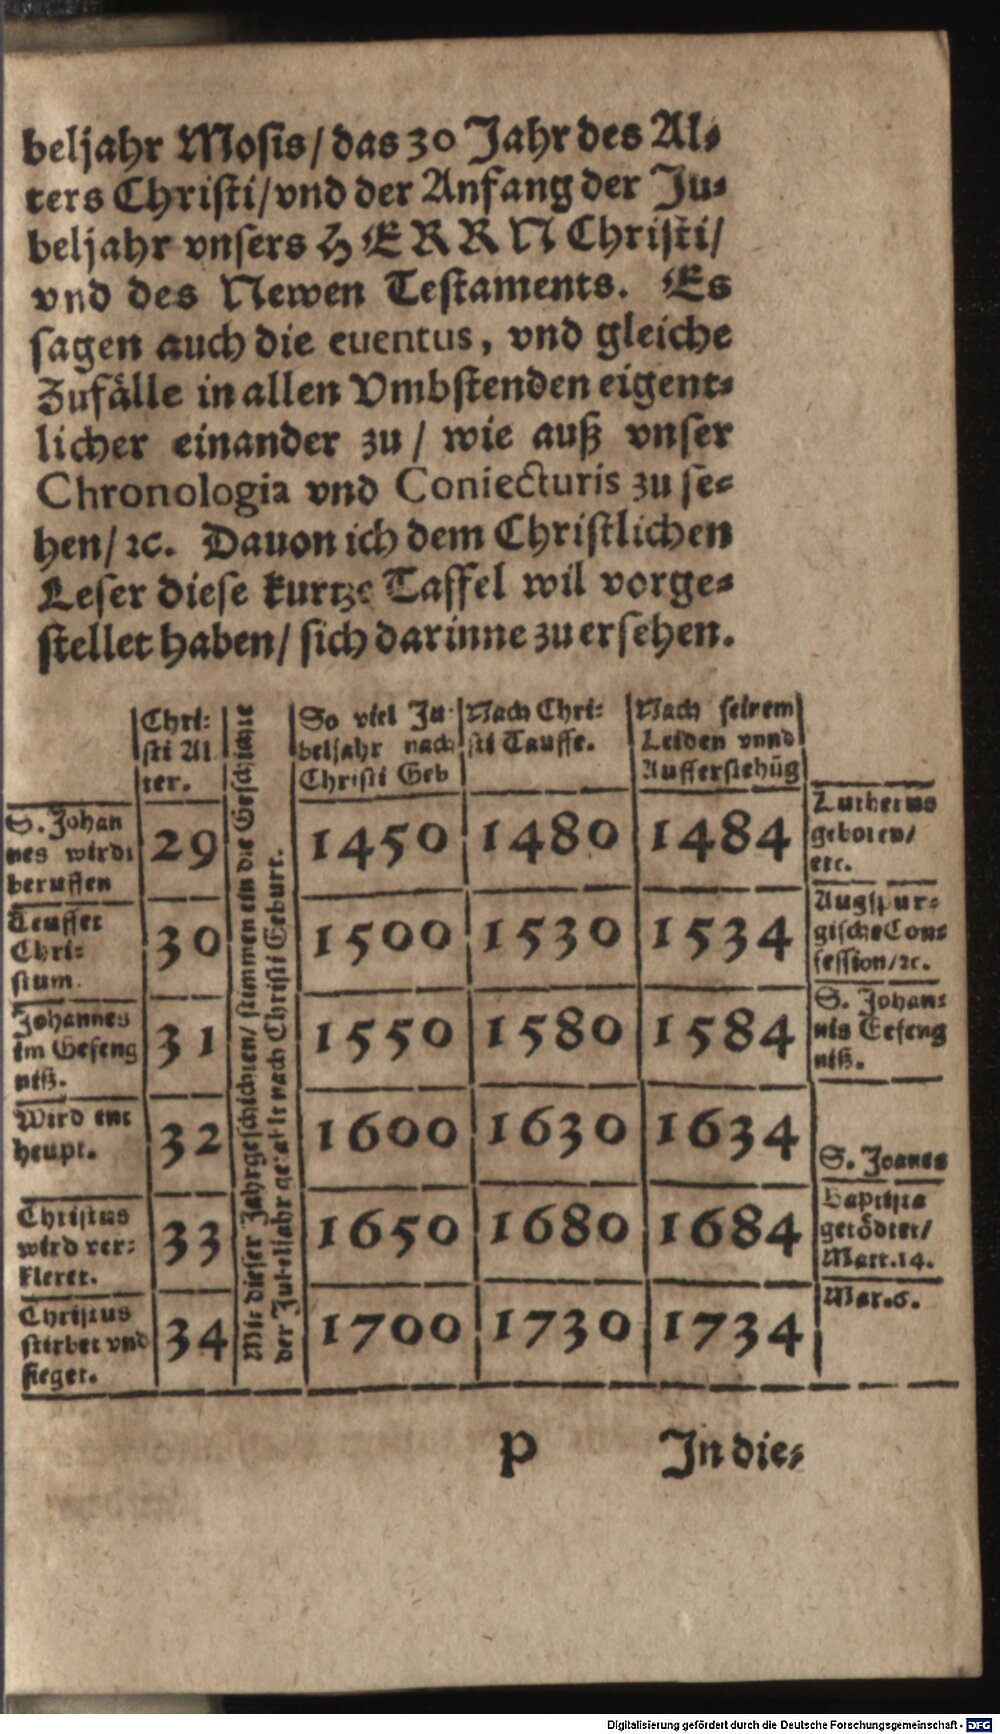 beljahr Mosis / das 30 Jahr des Al⸗
ters Christi / vnd der Anfang der Ju⸗
beljahr vnsers HERRN Christi /
vnd des Newen Testaments. Es
sagen auch die euentus, vnd gleiche
Zufälle in allen Vmbstenden eigent⸗
licher einander zu / wie auß vnser
Chronologia vnd Coniecturis zu se⸗
hen / ꝛc. Dauon ich dem Christlichen
Leser diese kurtze Taffel wil vorge⸗
stellet haben / sich darinne zu ersehen.
Chri⸗
sti Al
ter.
Mit dieser Jahrgeschichten / stimmen ein die Geschichte
der Jubeljahr gezalt nach Christi Geburt.
So viel Ju
beljahr nach
Christi Geb
Nach Chri⸗
sti Tauffe.
Nach seinem
Leiden vnnd
Aufferstehũg
S. Johan
nes wirdt
beruffen
29
1450
1480
1484
Lutherus
geboren /
etc.
Teuffet
Chri⸗
stum.
30
1500
1530
1534
Augspur⸗
gische Con⸗
fession / ꝛc.
Johannes
im Gefeng
niß.
31
1550
1580
1584
S. Johan⸗
nis Gefeng
niß.
Wird ent
heupt.
32
1600
1630
1634
S. Joanes
Christus
wird ver⸗
kleret.
33
1650
1680
1684
Baptista
getödtet /
Matt. 14.
Christus
stirbet vnd
sieget.
34
1700
1730
1734
Mar. 6.
P
In die⸗
Digitalisierung gefördert durch die Deutsche Forschungsgemeinschaft - DFG